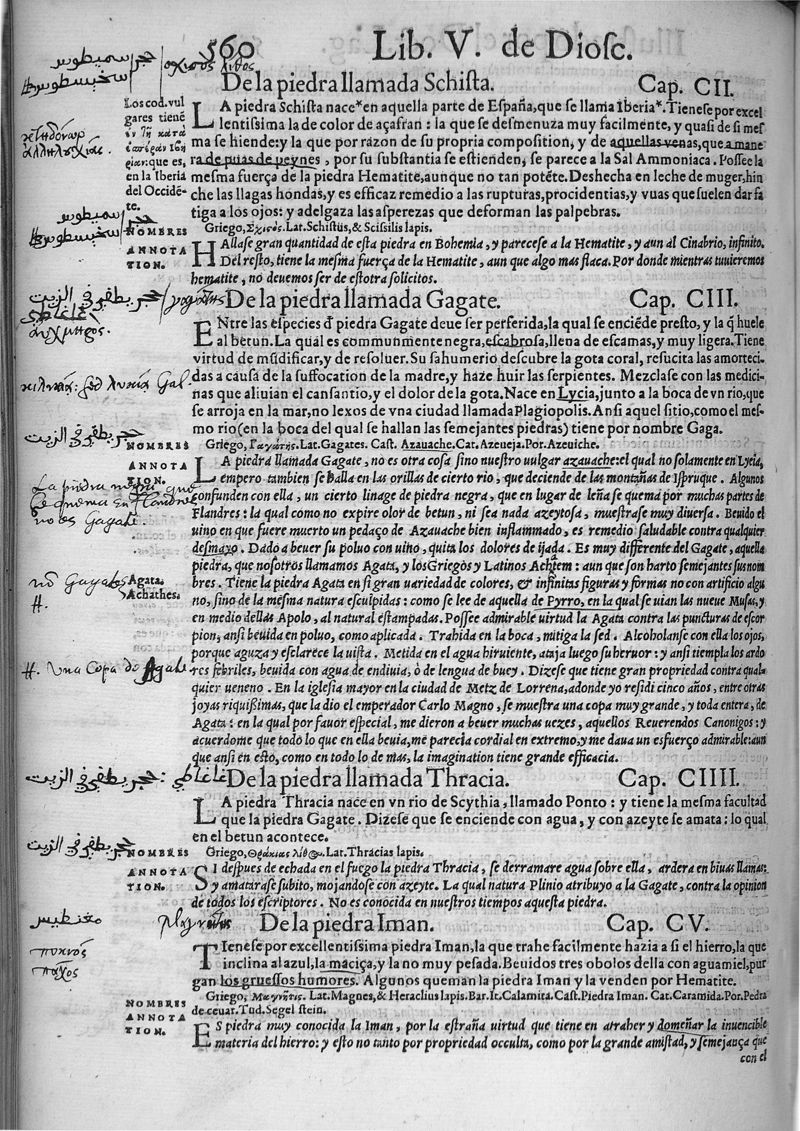 560 Lib. V. de Diosc.
De la piedra llamada Schista. Cap. CII.
Los cod. vul
gares tienē
ἐν τῇ κατὰ
rian: que es,
en la Iberia
del Occidē-
te.
LA piedra Schista nace* en aquella parte de España, que se llama Iberia*. Tienese por excel
lentissima la de color de açafran: la que se desmenuza muy facilmente, y quasi de si mes
ma se hiende: y la que por razon de su propria composition, y de aquellas venas, que a mane
ra de puias de peynes, por su substantia se estienden, se parece a la Sal Ammoniaca. Possee la
mesma fuerça de la piedra Hematite, aunque no tan potēte. Deshecha en leche de muger, hin
che las llagas hondas, y es efficaz remedio a las rupturas, procidentias, y vuas que suelen dar fa
tiga a los ojos: y adelgaza las asperezas que deforman las palpebras.
NOMBRES
Griego, Σχιςὸς. Lat. Schistus, & Scissilis lapis.
ANNOTA
TION.
HAllase gran quantidad de esta piedra en Bohemia, y parecese a la Hematite, y aun al Cinabrio, infinito.
Del resto, tiene la mesma fuerça de la Hematite, aun que algo mas flaca. Por donde mientras tuuieremos
hematite, no deuemos ser de estotra solicitos.
De la piedra llamada Gagate. Cap. CIII.
ENtre las especies đ piedra Gagate deue ser perferida, la qual se enciēde presto, y la q̃ huele
al betun. La qual es communmente negra, escabrosa, llena de escamas, y muy ligera. Tiene
virtud de mūdificar, y de resoluer. Su sahumerio descubre la gota coral, resucita las amorteci
das a causa de la suffocation de la madre, y haze huir las serpientes. Mezclase con las medici
nas que aliuian el cansantio, y el dolor de la gota. Nace en Lycia, junto a la boca de vn rio, que
se arroja en la mar, no lexos de vna ciudad llamada Plagiopolis. Ansi aquel sitio, como el mes-
mo rio (en la boca del qual se hallan las semejantes piedras) tiene por nombre Gaga.
NOMBRES
Griego, Γαγάτης. Lat. Gagates. Cast. Azauache. Cat. Azeueja. Por. Azeuiche.
ANNOTA
TION.
LA piedra llamada Gagate, no es otra cosa sino nuestro uulgar azauache: el qual no solamente en Lycia,
empero tambien se halla en las orillas de cierto rio, que deciende de las montañas de Ispruque. Algunos
confunden con ella, un cierto linage de piedra negra, que en lugar de leña se quema por muchas partes de
Flandres: la qual como no expire olor de betun, ni sea nada azeytosa, muestrase muy diuersa. Beuido el
uino en que fuere muerto un pedaço de Azauache bien inflammado, es remedio saludable contra qualquier
desmayo. Dado a beuer su poluo con uino, quita los dolores de ijada. Es muy differente del Gagate, aquella
Agata.
Achathes.
piedra, que nosotros llamamos Agata, y los Griegos y Latinos Achtem: aun que son harto semejantes sus nom
bres. Tiene la piedra Agata en si gran uariedad de colores, & infinitas figuras y formas no con artificio algu
no, sino de la mesma natura esculpidas: como se lee de aquella de Pyrro, en la qual se uian las nueue Musas, y
en medio dellas Apolo, al natural estampadas. Possee admirable uirtud la Agata contra las puncturas de escor
pion, ansi beuida en poluo, como aplicada. Trahida en la boca, mitiga la sed. Alcoholanse con ella los ojos,
porque aguza y esclarece la uista. Metida en el agua hiruiente, ataja luego su heruor: y ansi tiempla los ardo
res febriles, beuida con agua de endiuia, ò de lengua de buey. Dizese que tiene gran propriedad contra qual-
quier ueneno. En la iglesia mayor en la ciudad de Metz de Lorrena, adonde yo residi cinco años, entre otras
joyas riquissimas, que la dio el emperador Carlo Magno, se muestra una copa muy grande, y toda entera, de
Agata: en la qual por fauor especial, me dieron a beuer muchas uezes, aquellos Reuerendos Canonigos: y
acuerdome que todo lo que en ella beuia, me parecia cordial en extremo, y me daua un esfuerço admirable: aun
que ansi en esto, como en todo lo de mas, la imagination tiene grande efficacia.
La piedra negra que
se quema en Flandres
no es Gagate.
no Gagates
#.
#. Una Copa de Agata
De la piedra llamada Thracia. Cap. CIIII.
LA piedra Thracia nace en vn rio de Scythia, llamado Ponto: y tiene la mesma facultad
que la piedra Gagate. Dizese que se enciende con agua, y con azeyte se amata: lo qual
en el betun acontece.
NOMBRES
Griego, Θρακίας λίθος. Lat. Thracias lapis.
ANNOTA
TION.
SI despues de echada en el fuego la piedra Thracia, se derramare agua sobre ella, ardera en biuas llamas:
y amatarase subito, mojandose con azeyte. La qual natura Plinio atribuyo a la Gagate, contra la opinion
de todos los escriptores. No es conocida en nuestros tiempos aquesta piedra.
De la piedra Iman. Cap. CV.
TIenese por excellentissima piedra Iman, la que trahe facilmente hazia a si el hierro, la que
inclina al azul, la maciça, y la no muy pesada. Beuidos tres obolos della con aguamiel, pur
gan los gruessos humores. Algunos queman la piedra Iman y la venden por Hematite.
NOMBRES
Griego, Μαγνῆτις. Lat. Magnes, & Heraclius lapis. Bar. It. Calamita. Cast. Piedra Iman. Cat. Caramida. Por. Pedra
de ceuar. Tud. Segel stein.
ANNOTA
TION.
ES piedra muy conocida la Iman, por la estraña virtud que tiene en atraher y domeñar la inuencible
materia del hierro: y esto no tanto por propriedad occulta, como por la grande amistad, y semejança que
con el